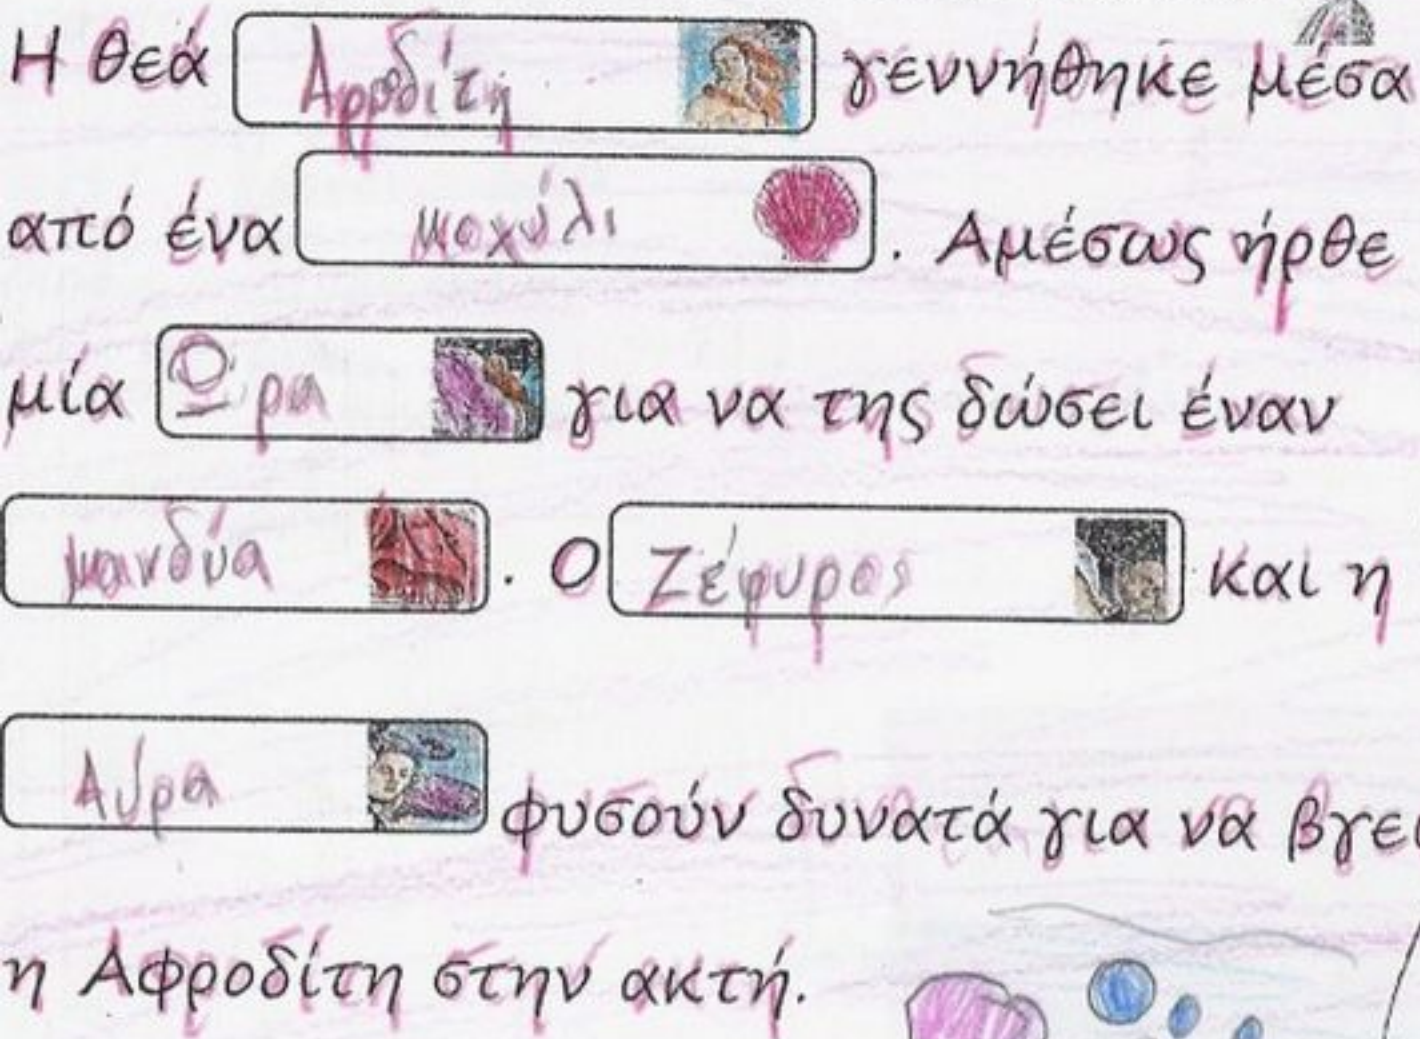 Η θεά Αφροδίτη γεννήθηκε μέσα
από ένα κοχύλι . Αμέσως ήρθε
μία Ωρα για να της δώσει έναν
μανδύα . Ο Ζέφυρος και η
Αύρα φυσούν δυνατά για να βγει
η Αφροδίτη στην ακτή.